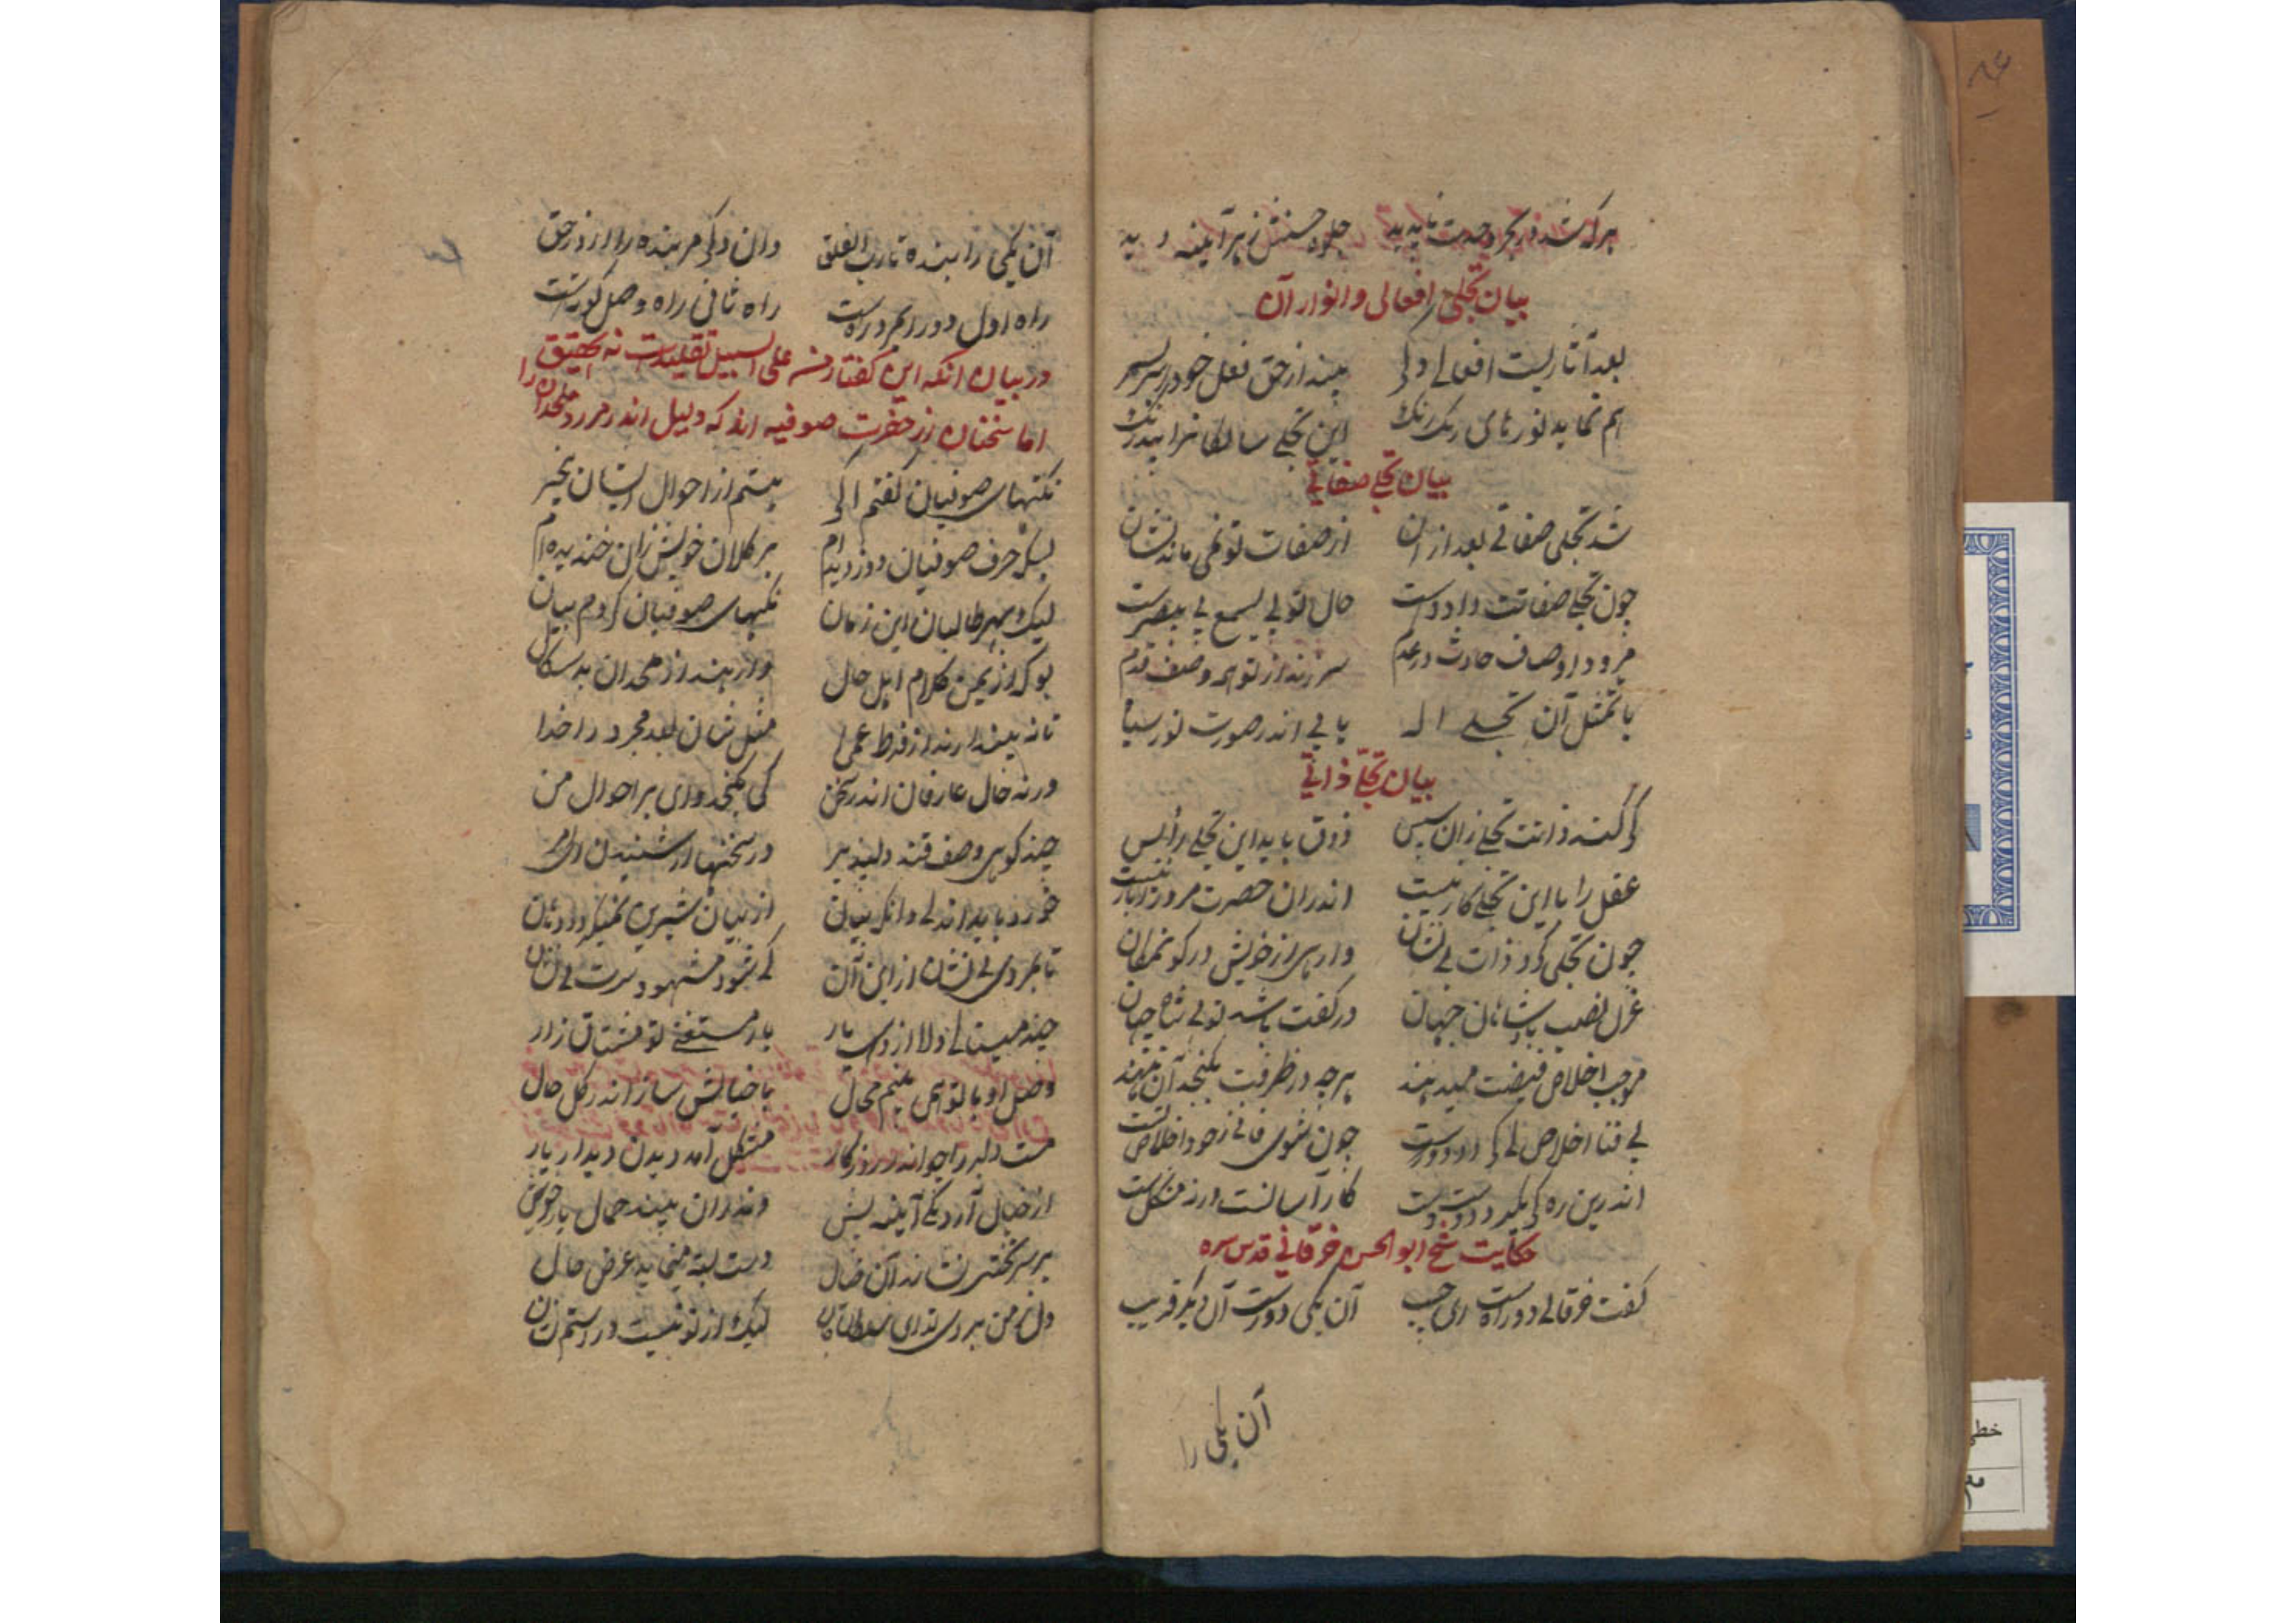 هرکه شد در بحر وحدت ناپدید جلوه حسنش ز هر آیینه دید
بیان تجلی افعالی و انوار آن
بعد آثاریست افعالی ولی بیند از حق فعل خود را سر بسر
هم نماید نورهای رنک رنک این تجلی سالکانرا بیدرنک
بیان تجلی صفاتی
شد تجلی صفاتی بعد از ان از صفات تو نمی ماند نشان
چون تجلی صفاتت داد دست حال تو بی یسمع بی یبصرست
میرود اوصاف حادث در عدم سر زند از تو همه وصف قدم
با تمثل آن تجلی اله یابی اندر صورت نور سیاه
بیان تجلی ذاتی
کر کند ذاتت تجلی زان سپس ذوق باید این تجلی را و بس
عقل را با این تجلی کار نیست اندران حضرت مرورا بار نیست
چون تجلی کرد ذات بی نشان وارهی از خویش در کون و مکان
عزل نصب پادشاهان جهان در کفت باشد تویی شاه جهان
موجب اخلاص فیضت میدهند هرچه در ظرفت بکنجد آن نهند
بی فنا اخلاص کی دارد درست چون شوی فانی ز خود اخلاص تست
اندرین ره کر بکیرد دوست دست کار آسانست ورنه مشکلست
حکایت شیخ ابوالحسن خرقانی قدس سره
کفت خرقانی دو راهست ای حبیب آن یکی دورست آن دیکر قریب
آن یکی را
آن یکی را بنده تا رب الفلق وان دکر مر بنده را از زد حق
راه اول دور اکر دورست راه ثانی راه وصل کورست
در بیان انکه این کفتار منه علی السبیل تقلیدست نه تحقیق
اما سخنان از حضرت صوفیه اند که دلیل اند در رد ملحدان را
نکتهای صوفیان کفتم اکر هستم از احوال ایشان بیخبر
لیک حرف صوفیان دزدیده ام بر کلان خویش زان خندیده ام
لیک بهر طالبان این زمان نکتهای صوفیان کردم بیان
بو که از یمن کلام اهل حال وارهند از ملحدان بد سکال
تا نه پندارند از فرط عما مثل شان بعد مجرد را خدا
ورنه حال عارفان اندر سخن کی بکنجد وای بر احوال من
چند کویی وصف قند دلپذیر در سخنها از شنیدن
خورد باید اندکی وانکه بیان از بیان شیرین نمیکردد دهان
تا نکردی بی نشان از این آن کی شود مشهودت بی نشان
چند مینالی دلا از دست یار یار مستغنی تو مشتاق زار
وصل او با تو همی بینم محال با خیالش ساز اندر کل حال
مست دلبر را چو اندر روزکار مشکل آمد دیدن دیدار یار
از خیال آرد یکی آیینه پیش وندران بیند جمال یار خویش
بر سر تختی نشاند آن خیال دست بسته مینماید عرض حال
لیک از تو نیست در دستم نشان